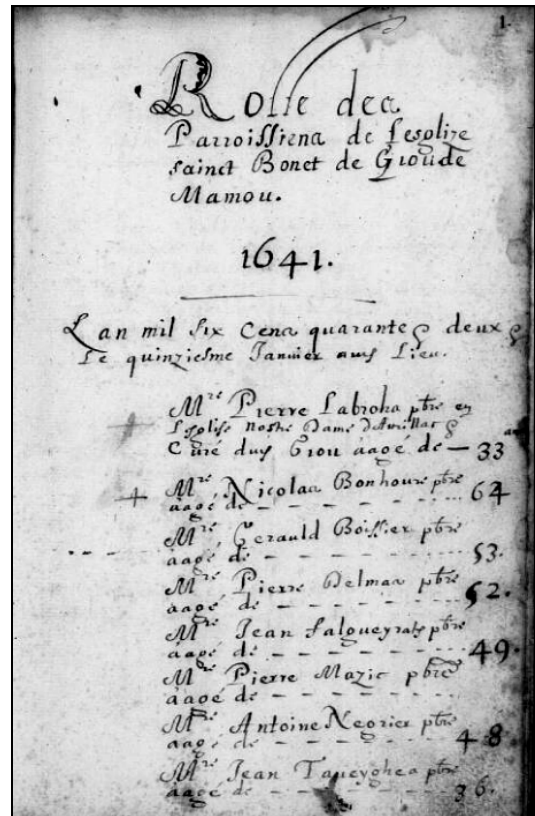 1.
Rolle des
Parroissiens de Lesglize
sainct Bonet de Gioude
Mamou.
1641.
Lan mil six Cens quarante & deux &
Le quinziesme Janvier audit Lieu.
Mre Pierre Labroha pbre en
Lesglise Nostre Dame d'Aurillac &
Curé dud Giou aagé de — 33 ans
Mre Nicolas Bonhoure pbre
aagé de - - - - 64
Mre Gerauld Boissier pbre
aagé de - - - - 53.
Mre Pierre Delmas pbre
aagé de - - - - 52.
Mre Jean Salgueyrats pbre
aagé de - - - - 49.
Mre Pierre Mazic pbre
aagé de - - - -
Mre Antoine Negrier pbre
aagé de - - - - 48
Mre Jean Taneyghes pbre
aagé de - - - - 36.